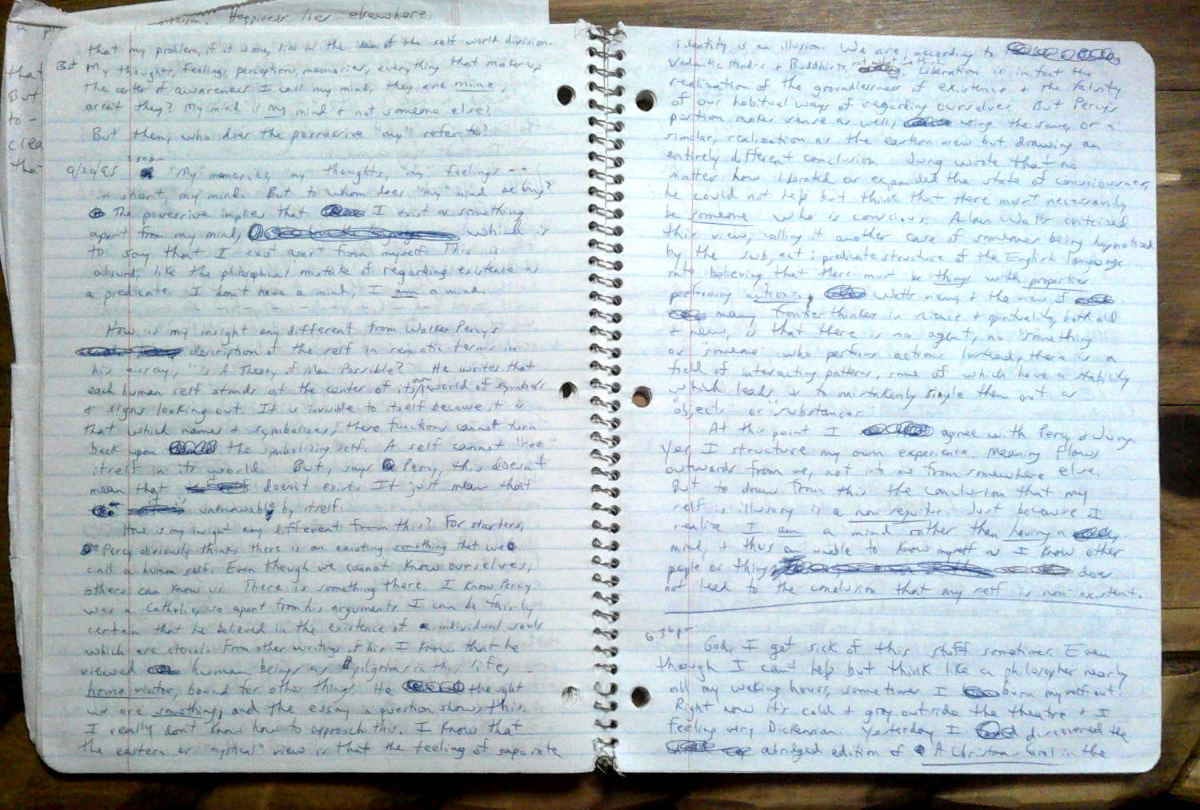 Happiness lies elsewhere.
that my problem, if it is one, lies in the idea of the self world division.
But my thoughts, feelings, perceptions, memories, everything that makes up
the center of awareness I call my mind, they are mine,
aren't they? My mind is my mind & not someone else's
But then, who does the possessive "my" refer to?
"My" memories, my thoughts, my feelings --
in short, my mind. But to whom does "my" mind belong?
The possessive implies that I exist as something
apart from my mind, which is
to say that I exist apart from myself. This is
absurd, like the philosophical mistake of regarding existence as
a predicate. I don't have a mind; I am a mind.
How is my insight any different from Walker Percy's
description of the self in semiotic terms in
his essay, "Is A Theory of Man Possible?" He writes that
each human self stands at the center of its own world of symbols
& signs looking out. It is invisible to itself because it is
that which names & symbolizes; these functions cannot turn
back upon the symbolizing self. A self cannot "see"
itself in its world. But, says Percy, this doesn't
mean that doesn't exist. It just means that
is unknowable by itself.
How is my insight any different from this? For starters,
Percy obviously thinks there is an existing something that we
call a human self. Even though we cannot know ourselves,
others can know us. There is something there. I know Percy
was a Catholic, so apart from his arguments I can be fairly
certain that he believed in the existence of individual souls
which are eternal. From other writings of his I know that he
viewed human beings as pilgrims in this life,
bound for other things. He thought
we are something, and the essay in question shows this.
I really don't know how to approach this. I know that
the eastern or "mystical" view is that the feeling of separate
identity is an illusion. We are, according to
Vedantic Hindus & Buddhists, Liberation is in fact the
realization of the groundlessness of existence & the falsity
of our habitual ways of regarding ourselves. But Percy's
position makes sense as well, using the same, or a
similar, realization as the eastern view but drawing an
entirely different conclusion. Jung wrote that no
matter how liberated or expanded the state of consciousness,
he could not help but think that there must necessarily
be someone who is conscious. Alan Watts criticized
this view, calling it another case of someone being hypnotized
by the subject : predicate structure of the English language
into believing that there must be things with properties
performing actions. Watts' view, & the view of
many frontier thinkers in science & spirituality both old
& new, is that there is no agent, no "something"
or "someone" who performs actions. Instead, there is a
field of interacting patterns, some of which have a stability
which leads us to mistakenly single them out as
"objects" or "substances."
At this point I agree with Percy & Jung.
Yes, I structure my own experience. Meaning flows
outwards from me, not into me from somewhere else.
But to draw from this the conclusion that my
self is illusory is a non sequitur. Just because I
realize I am a mind rather than having a
mind, & thus am unable to know myself as I know other
people or things does
not lead to the conclusion that my self is non-existent.
God, I get sick of this stuff sometimes. Even
though I can't help but think like a philosopher nearly
all my waking hours, sometimes I burn myself out.
Right now it's cold & gray outside the theatre & I
feeling very Dickensian. Yesterday I discovered the
abridged edition of A Christmas Carol in the